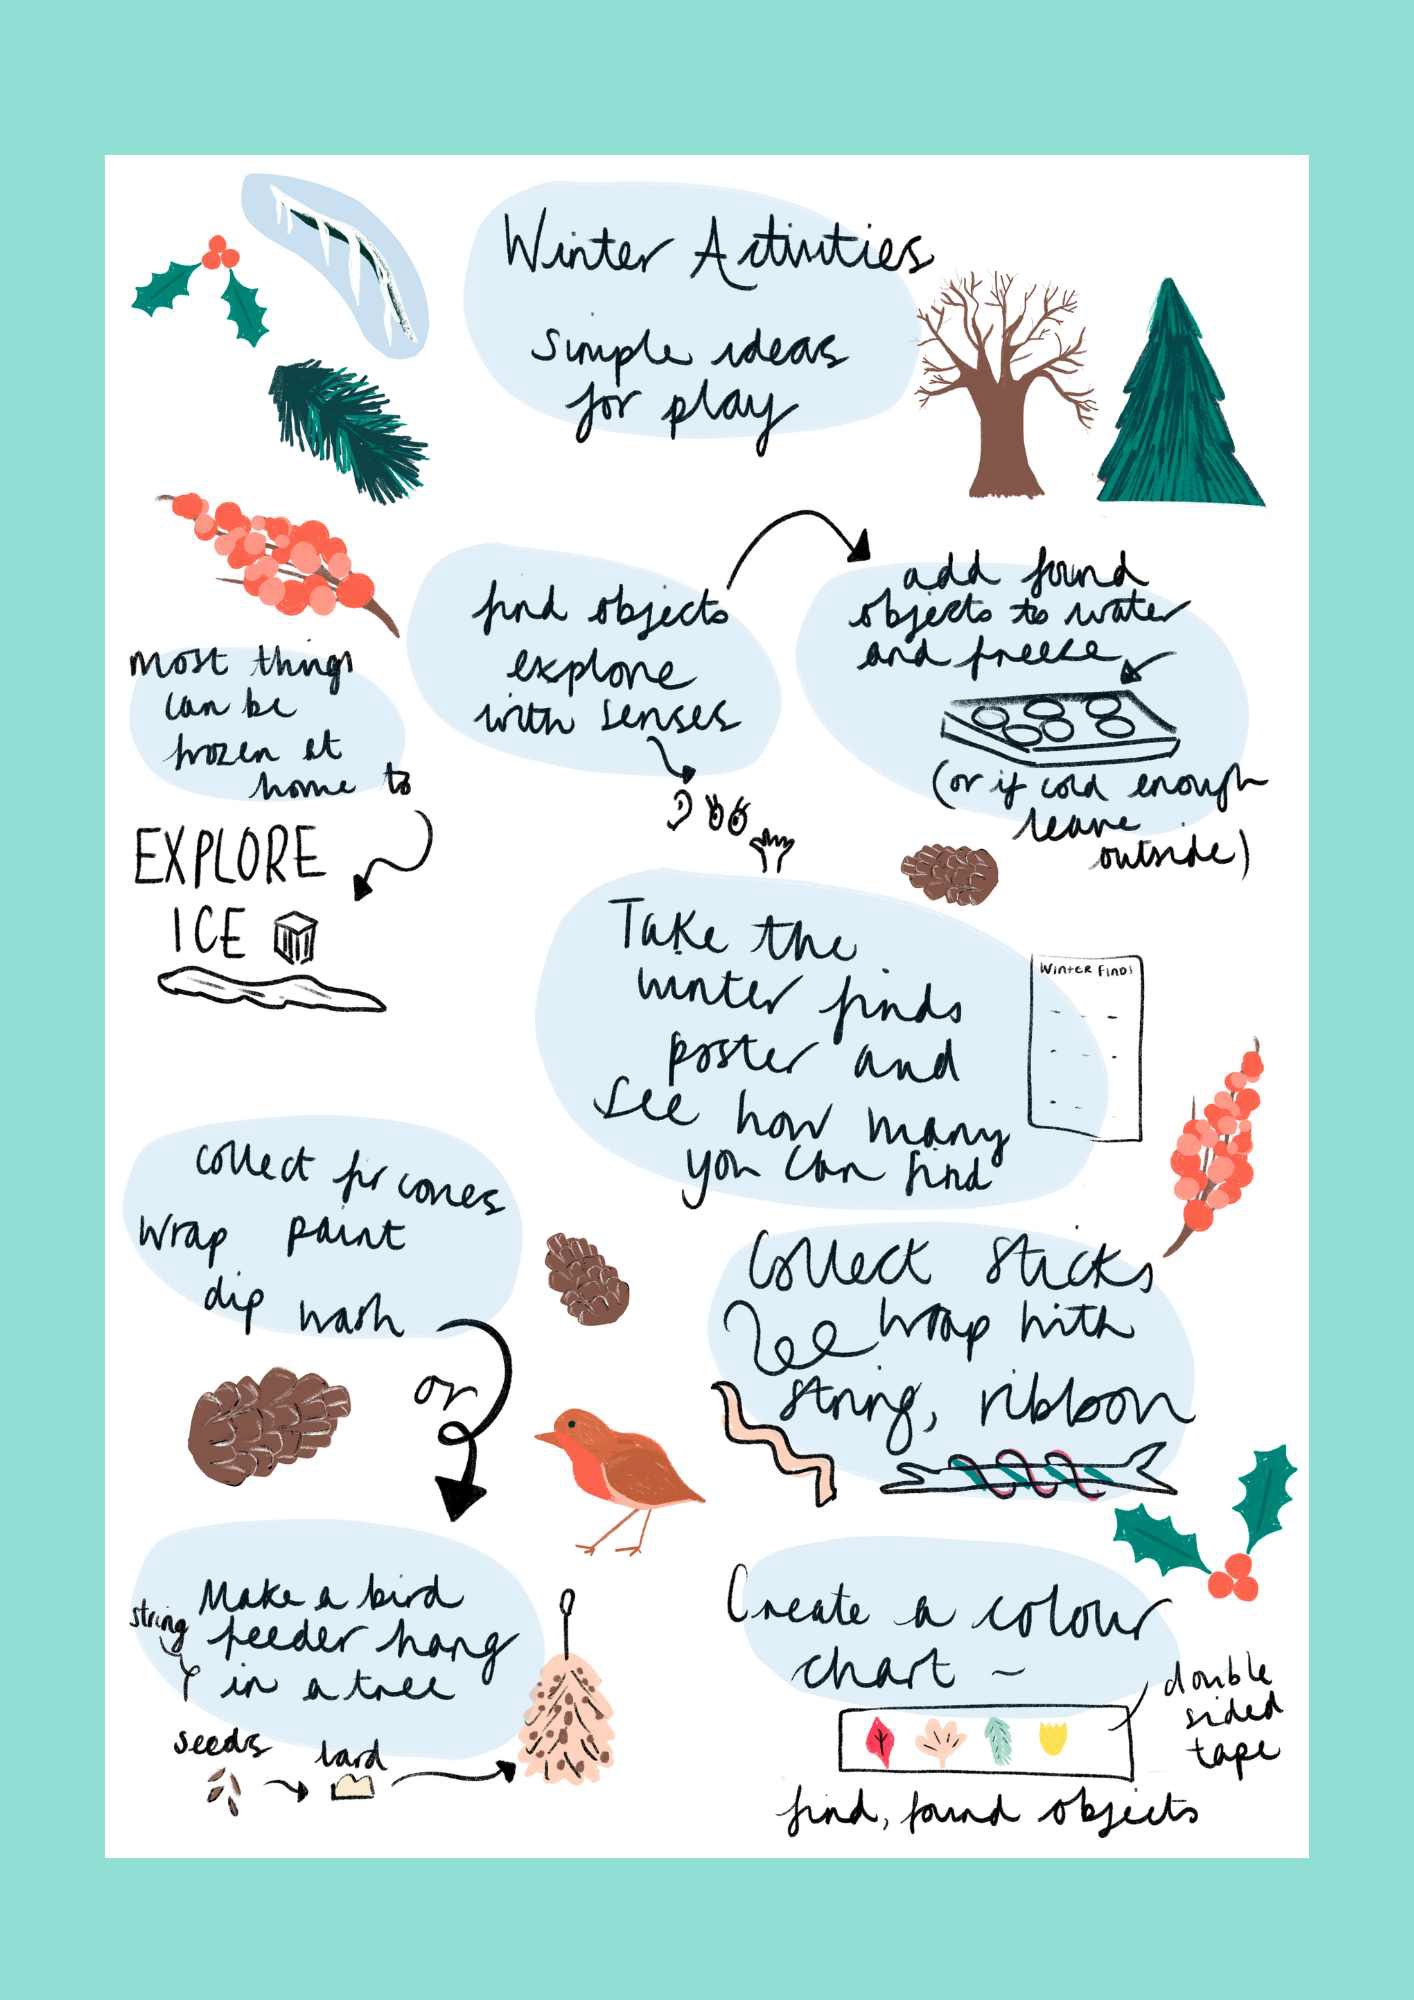 Winter Activities
Simple ideas
for play
find objects
explore
with senses
add found
objects to water
and freeze
(or if cold enough
leave
outside)
most things
can be
frozen at
home to
EXPLORE
ICE
Take the
winter finds
poster and
See how many
you can find
Winter Finds
collect fir cones
wrap paint
dip wash
or
Collect Sticks
wrap with
string, ribbon
Make a bird
feeder hang
in a tree
string
seeds
lard
Create a colour
chart ~
double
sided
tape
find, found objects